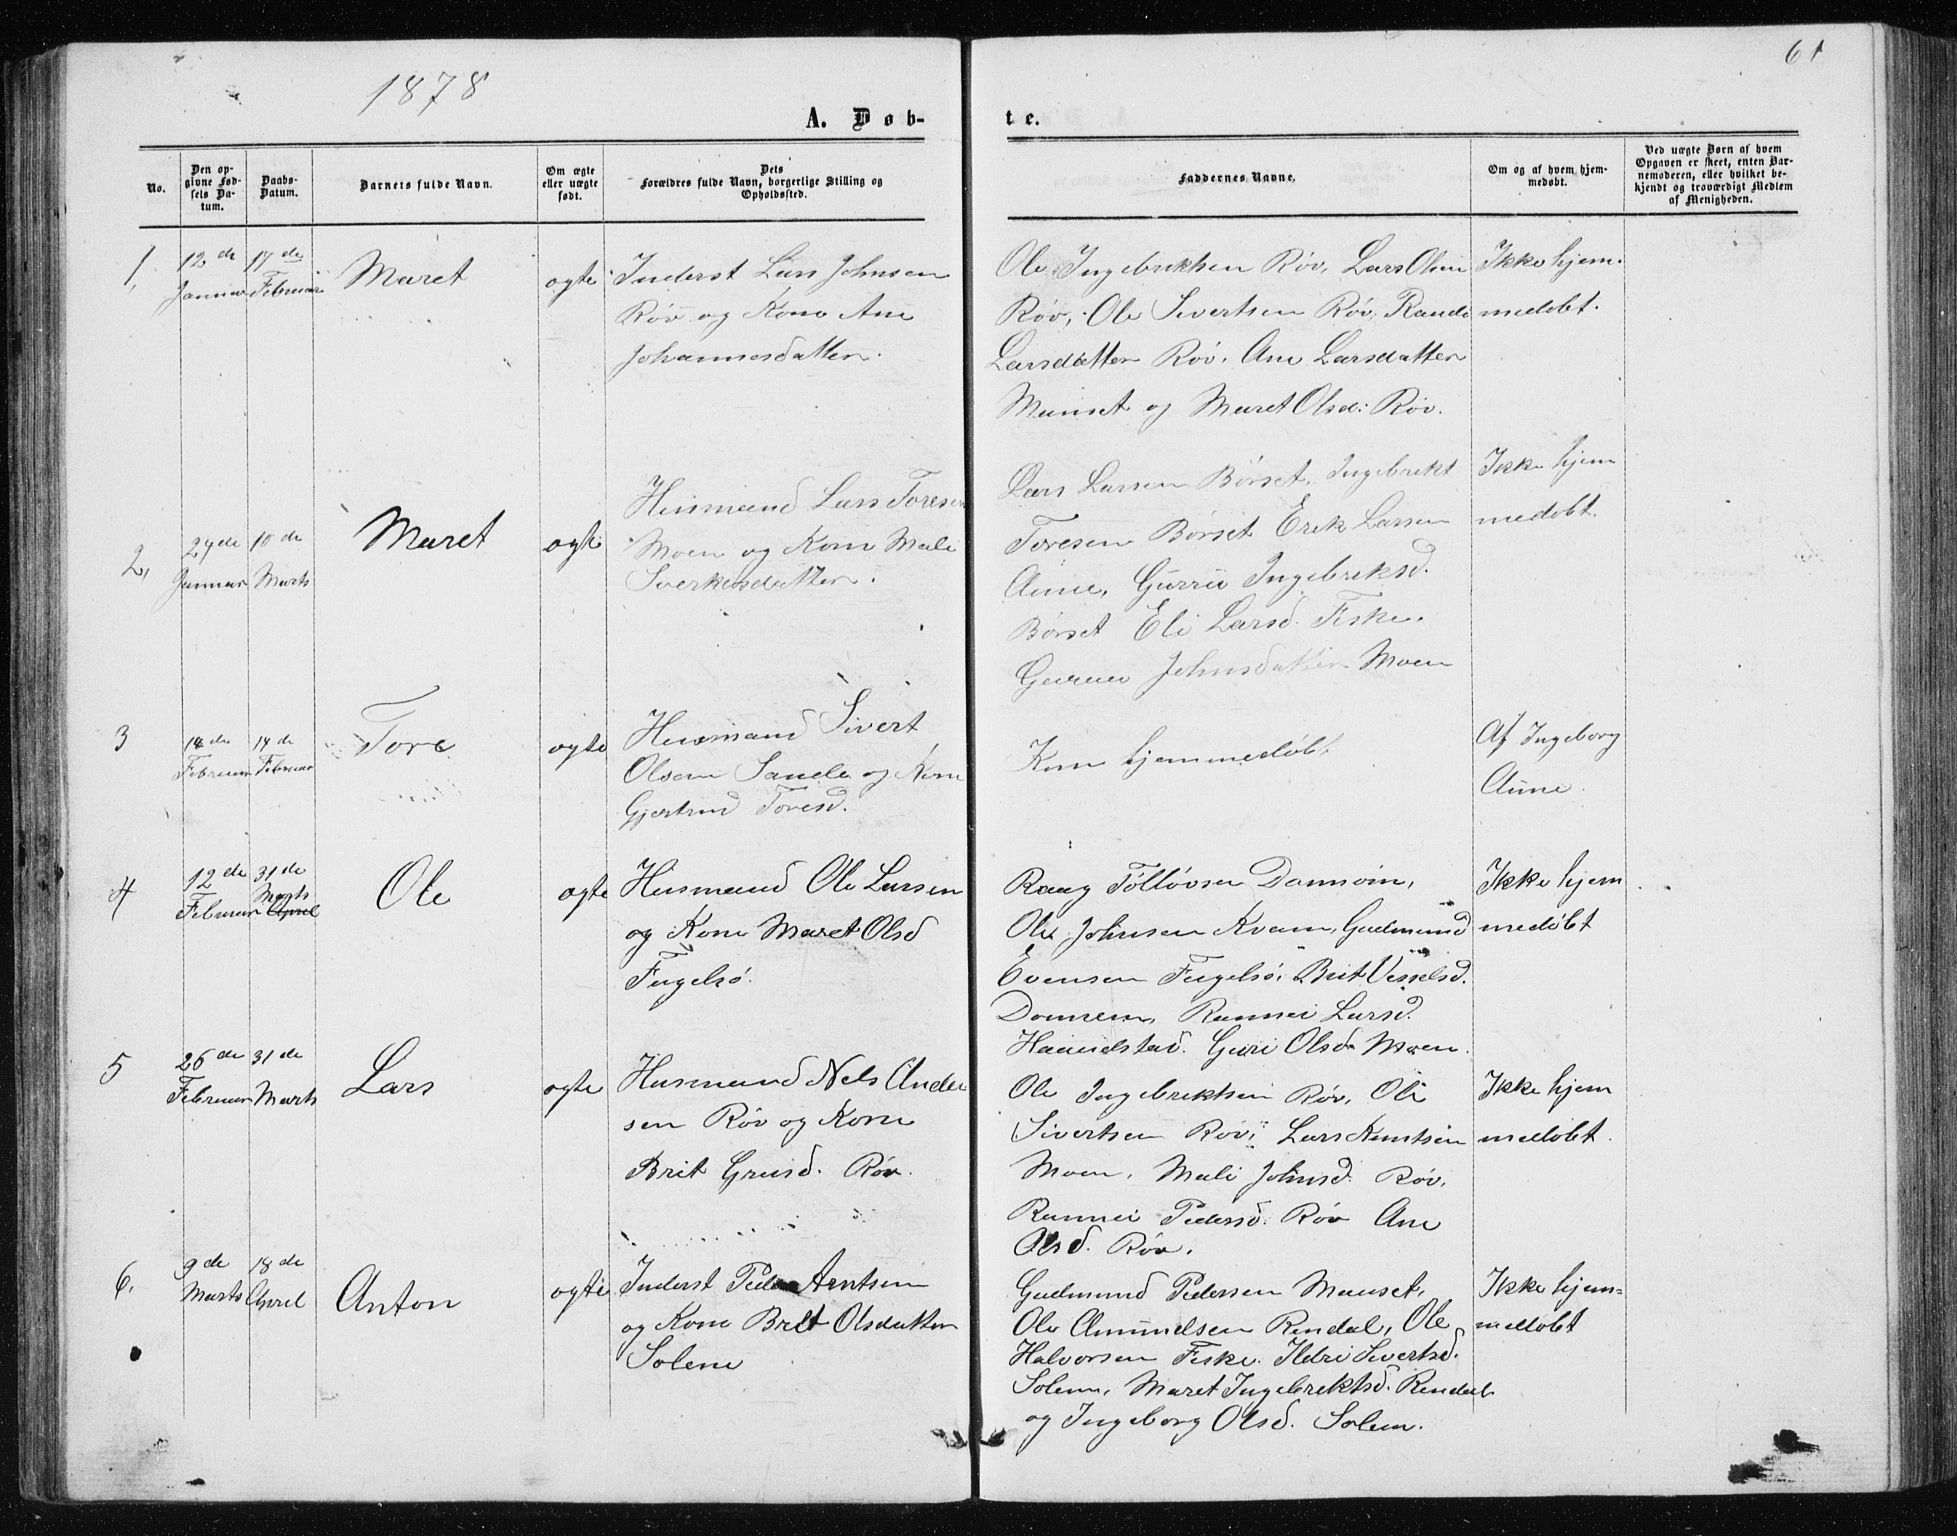 61
1878
A. Døb-
te.
No.
Den op-
givne Fød-
sels Da-
tum.
Daabs-
Datum.
Barnets fulde Navn.
Om ægte
eller uægte
født.
Dets
Forældres fulde Navn, borgerlige Stilling og
Opholdssted.
Faddernes Navne.
Om og af hvem hjem-
medøbt.
Ved uægte Børn af hvem
Opgaven er skeet, enten Bar-
nemoderen, eller hvilket be-
kjendt og troværdigt Medlem
af Menigheden.
1,
12 de
Januar
17 de
Februar
Maret
ogte
Inderst Lars Johnsen
Røv og Kone Ane
Johannesdatter.
Ole Ingebrikhsen Røv, Lars Olsen
Røv, Ole Sivertsen Røv, Rande
Larsdatter Røv, Ane Larsdatter
Munset og Maret Olsd: Røv.
Ikke hjem-
medøbt.
2,
24 de
Januar
10 de
Marts
Maret
ogte
Husmand Lars Toresen
Moen og Kone Mali
Sverkesdatter.
Lars Larsen Børset, Ingebrikt
Toresen Børset Erik Larsen
Aune, Gurru Ingebreksd.
Børset Eli Larsd. Fiske.
Johnsdatter Moen
Ikke hjem
medøbt.
3
14 de
Februar
14 de
Februar
Tore
ogte
Husmand Sivert
Olsen Sande og Kone
Gjertrud Toresd.
Kun hjemmedøbt
Af Ingeborg
Aune.
4
12 de
Februar
31 de
Marts
April
Ole
ogte
Husmand Ole Larsen
og Kone Maret Olsd
Fugelsø.
Raag Tølløvsen
Ole Johnsen Kvam, Gudmund
Evensen Fugelsø, Brit Visselsd.
Donnem, Rannei Larsd.
Haandstad. Guri Olsd Moen.
Ikke hjem
medøbt
5
26 de
Februar
31 de
Marts
Lars
ogte
Husmand Nels Ande
sen Røv og Kone
Brit Grusd. Røv.
Ole Ingebrektsen Røv, Ole
Sivertsen Røv, Lars Knutsen
Moen, Mali Johnsd. Røv,
Rannei Pedersd. Røv Ane
Olsd. Røv.
Ikke hjem
medøbt.
6,
9 de
Marts
18 de
April
Anton
ogte
Inderst Peder Arntsen
og Kone Brit Olsdatter
Solem
Gudmund Pedersen Manset,
Ole Amundsen Rendal, Ole
Halvorsen Fiske. Ildri Sivertsd.
Solem, Maret Ingebrektsd. Rendal
og Ingeborg Olsd. Solem.
Ikke hjem-
medøbt